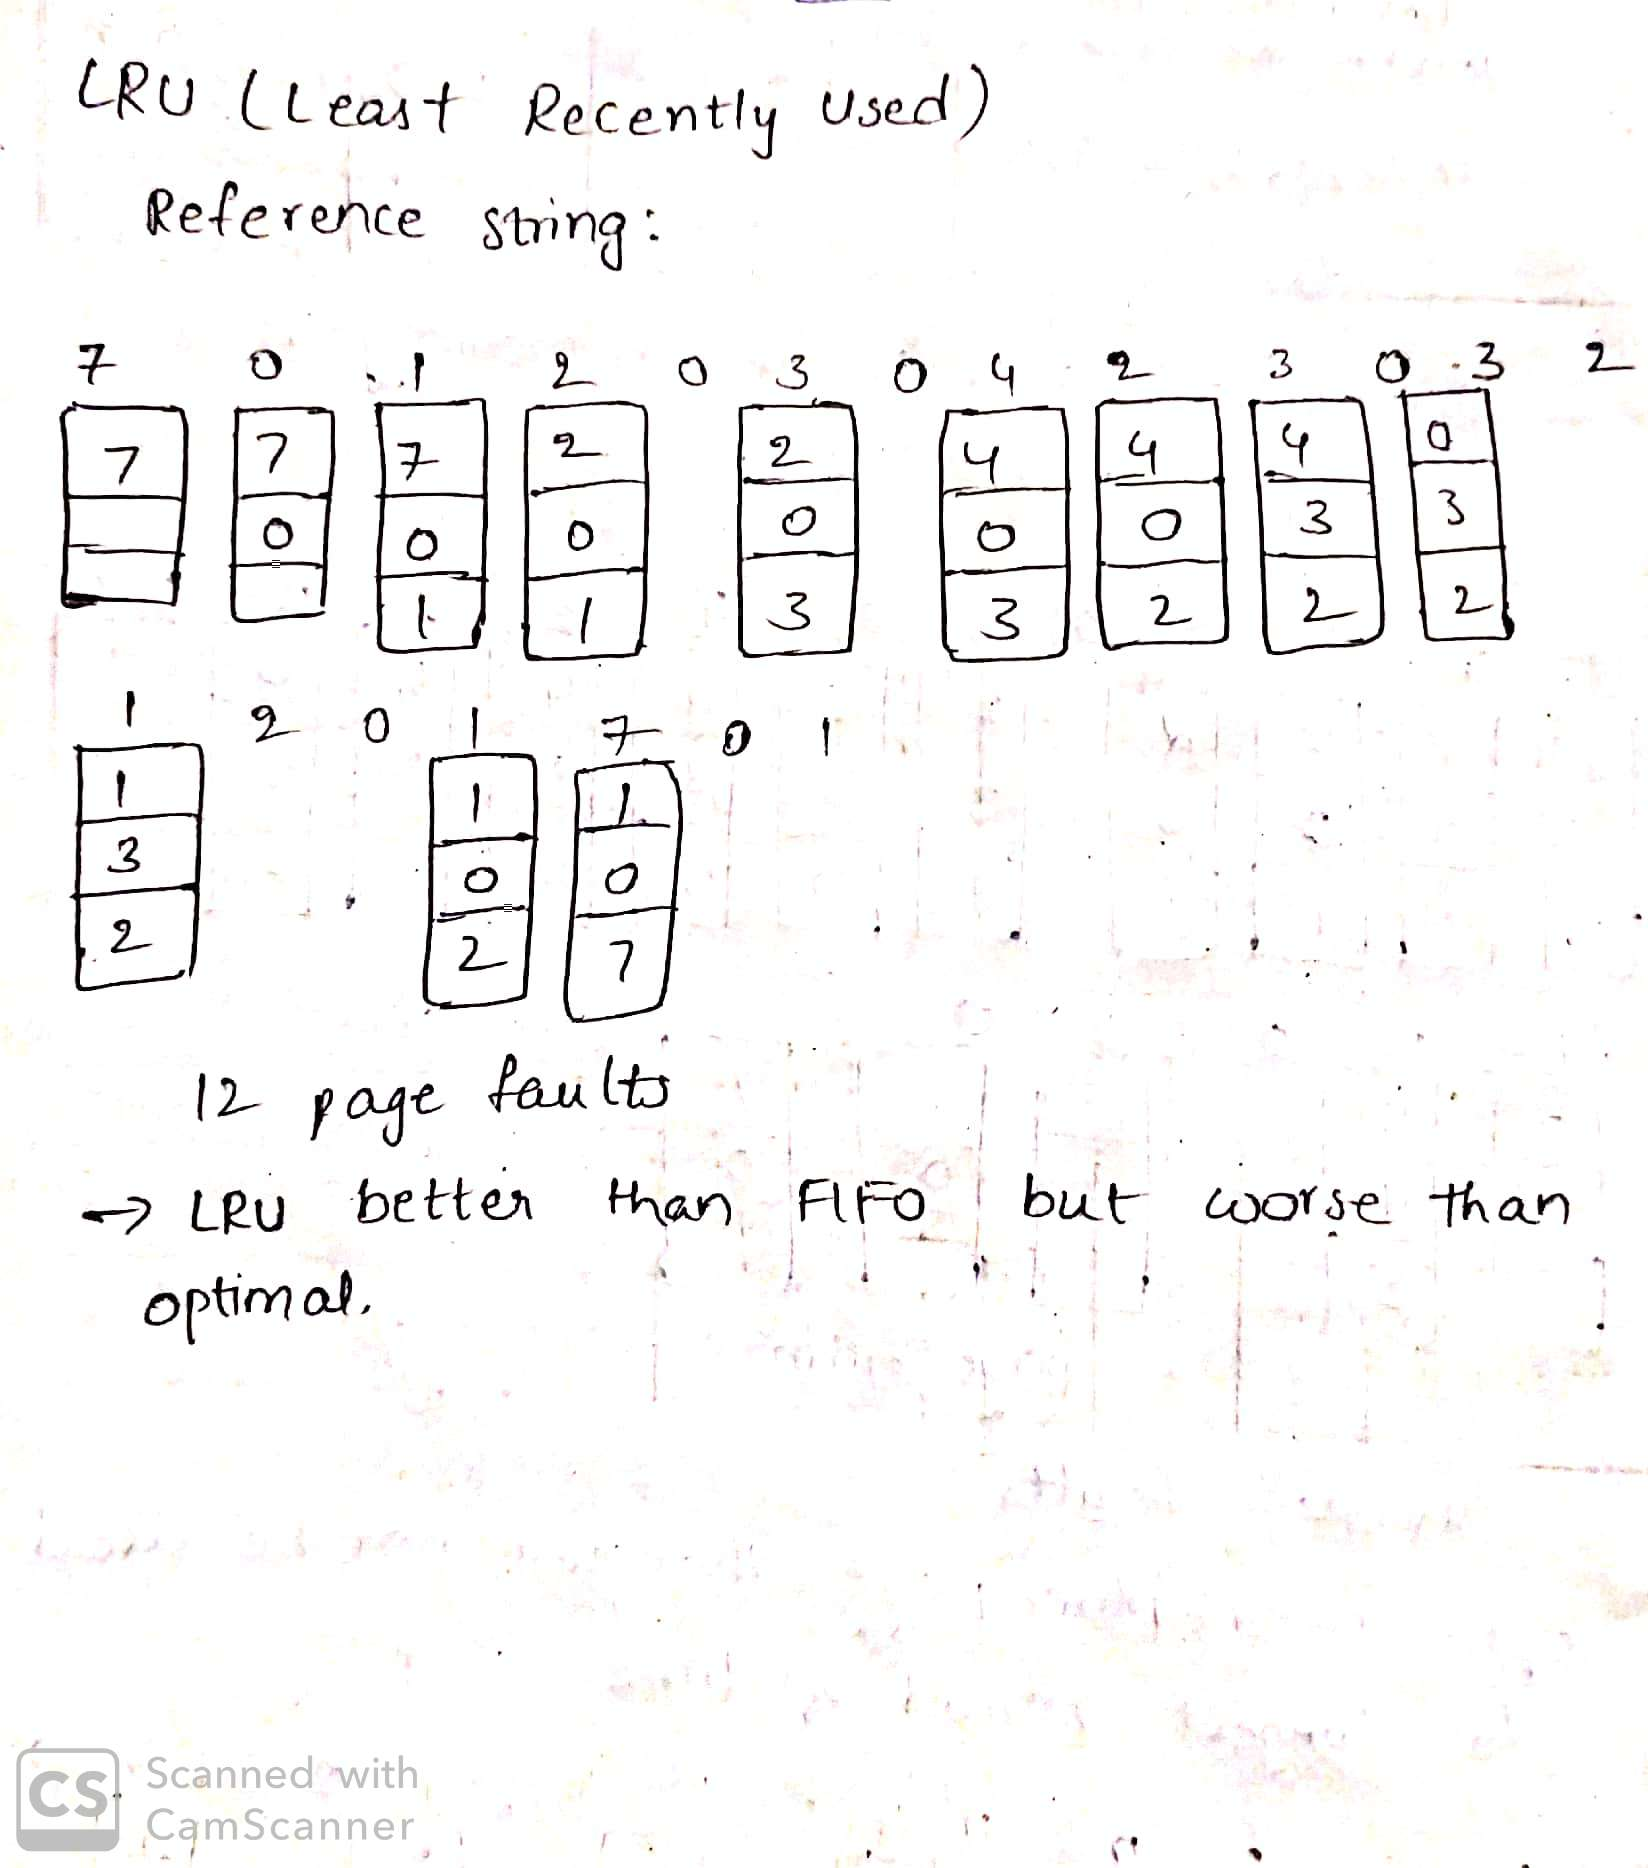 LRU (Least Recently Used)
Reference string:
7 0 1 2 0 3 0 4 2 3 0 3 2
7 7 7 2 2 4 4 4 0
0 0 0 0 0 0 3 3
1 1 3 3 2 2 2
1 2 0 1 7 0 1
1 1 1
3 0 0
2 2 7
12 page faults
→ LRU better than FIFO but worse than
optimal.
CS Scanned with
CamScanner